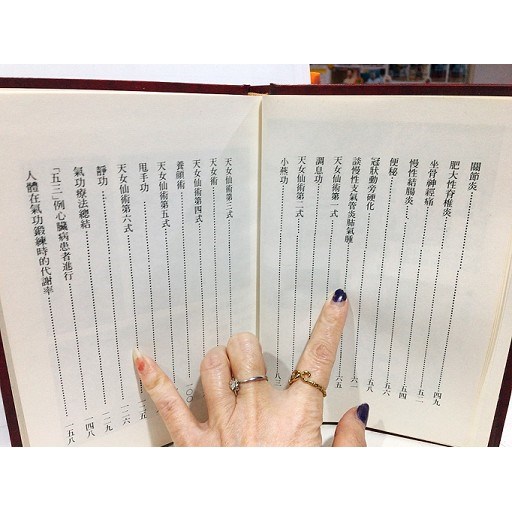 關節炎 四九
肥大性脊椎炎 五一
坐骨神經痛
慢性結腸炎 五四
便秘 五六
冠狀動旁硬化 五八
談慢性支氣管炎肺氣腫 六
天女仙術第一式 六五
調息功
天女仙術第二式
小燕功 八三
天女仙術第三式
天女仙術
天女仙術第四式
養顔術 一〇〇
天女仙術第五式
甩手功 一五
天女仙術第六式 一二六
靜功 一二九
氣功療法總結 一四八
「五三」例心臟病患者進行
人體在氣功鍛練時的代謝率 一五八